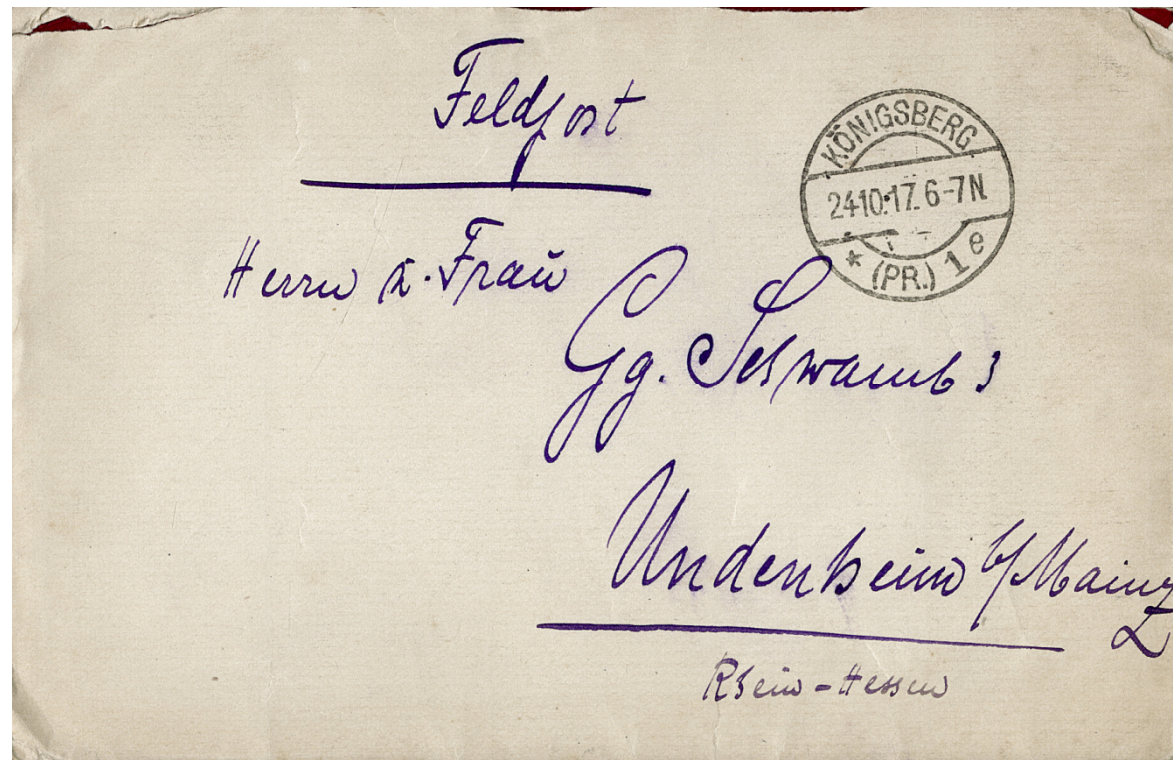 Feldpost
KÖNIGSBERG
24.10.17. 6-7 N
* (PR.) 1 e
Herrn u. Frau
Gg. Schwamb 3
Undenheim b/Mainz
Rhein-Hessen